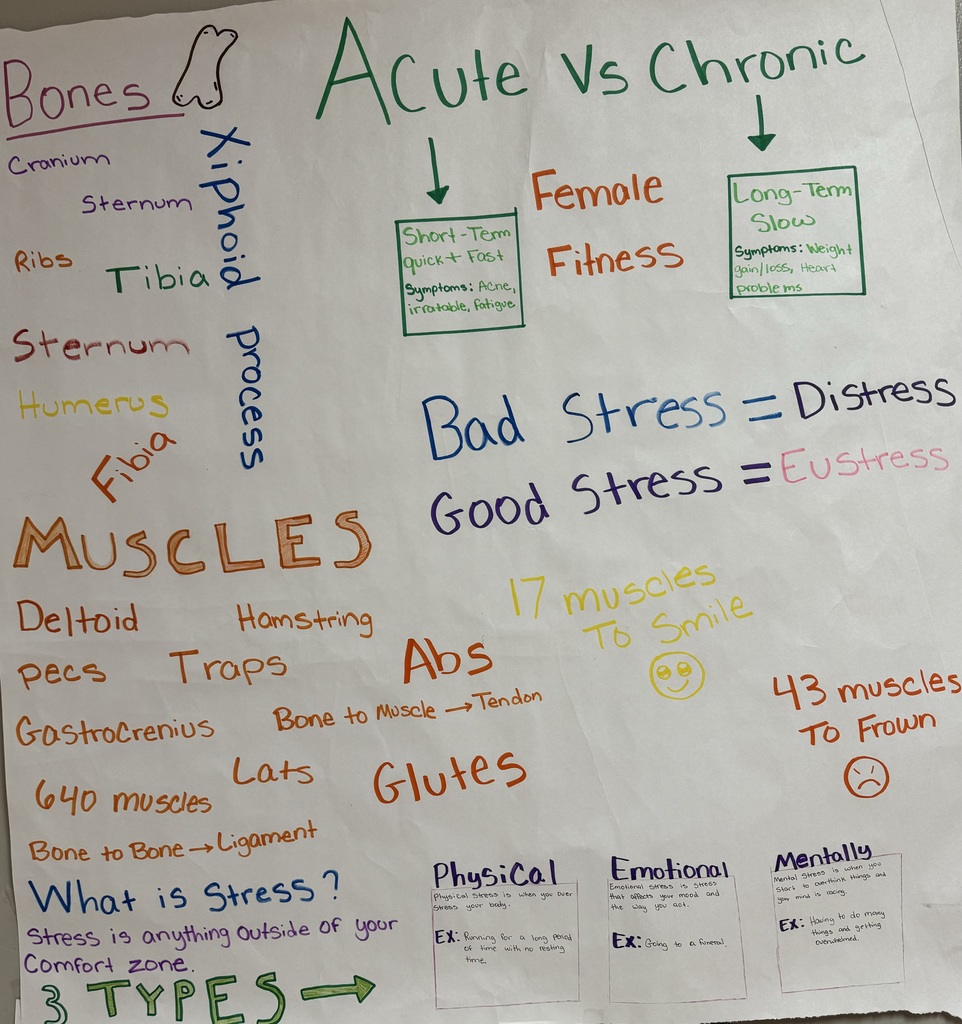 Bones
Cranium
Sternum
Xiphoid process
Ribs
Tibia
Sternum
Humerus
Fibia
Acute Vs Chronic
Short-Term
quick + Fast
Symptoms: Acne,
irratable, fatigue
Female
Fitness
Long-Term
Slow
Symptoms: Weight
gain/loss, Heart
problems
Bad Stress = Distress
Good Stress = Eustress
MUSCLES
Deltoid
Hamstring
pecs
Traps
Abs
Gastrocrenius
Bone to Muscle → Tendon
Lats
Glutes
640 muscles
Bone to Bone → Ligament
17 muscles
To Smile
43 muscles
To Frown
What is Stress?
Stress is anything outside of your
Comfort zone.
3 TYPES →
Physical
Physical Stress is when you over
Stress your body.
EX: Running for a long period
of time with no resting
time.
Emotional
Emotional stress is stress
that affects your mood and
the way you act.
Ex: Going to a funeral
Mentally
Mental Stress is when you
start to overthink things and
your mind is racing.
Ex: Having to do many
things and getting
overwhelmed.